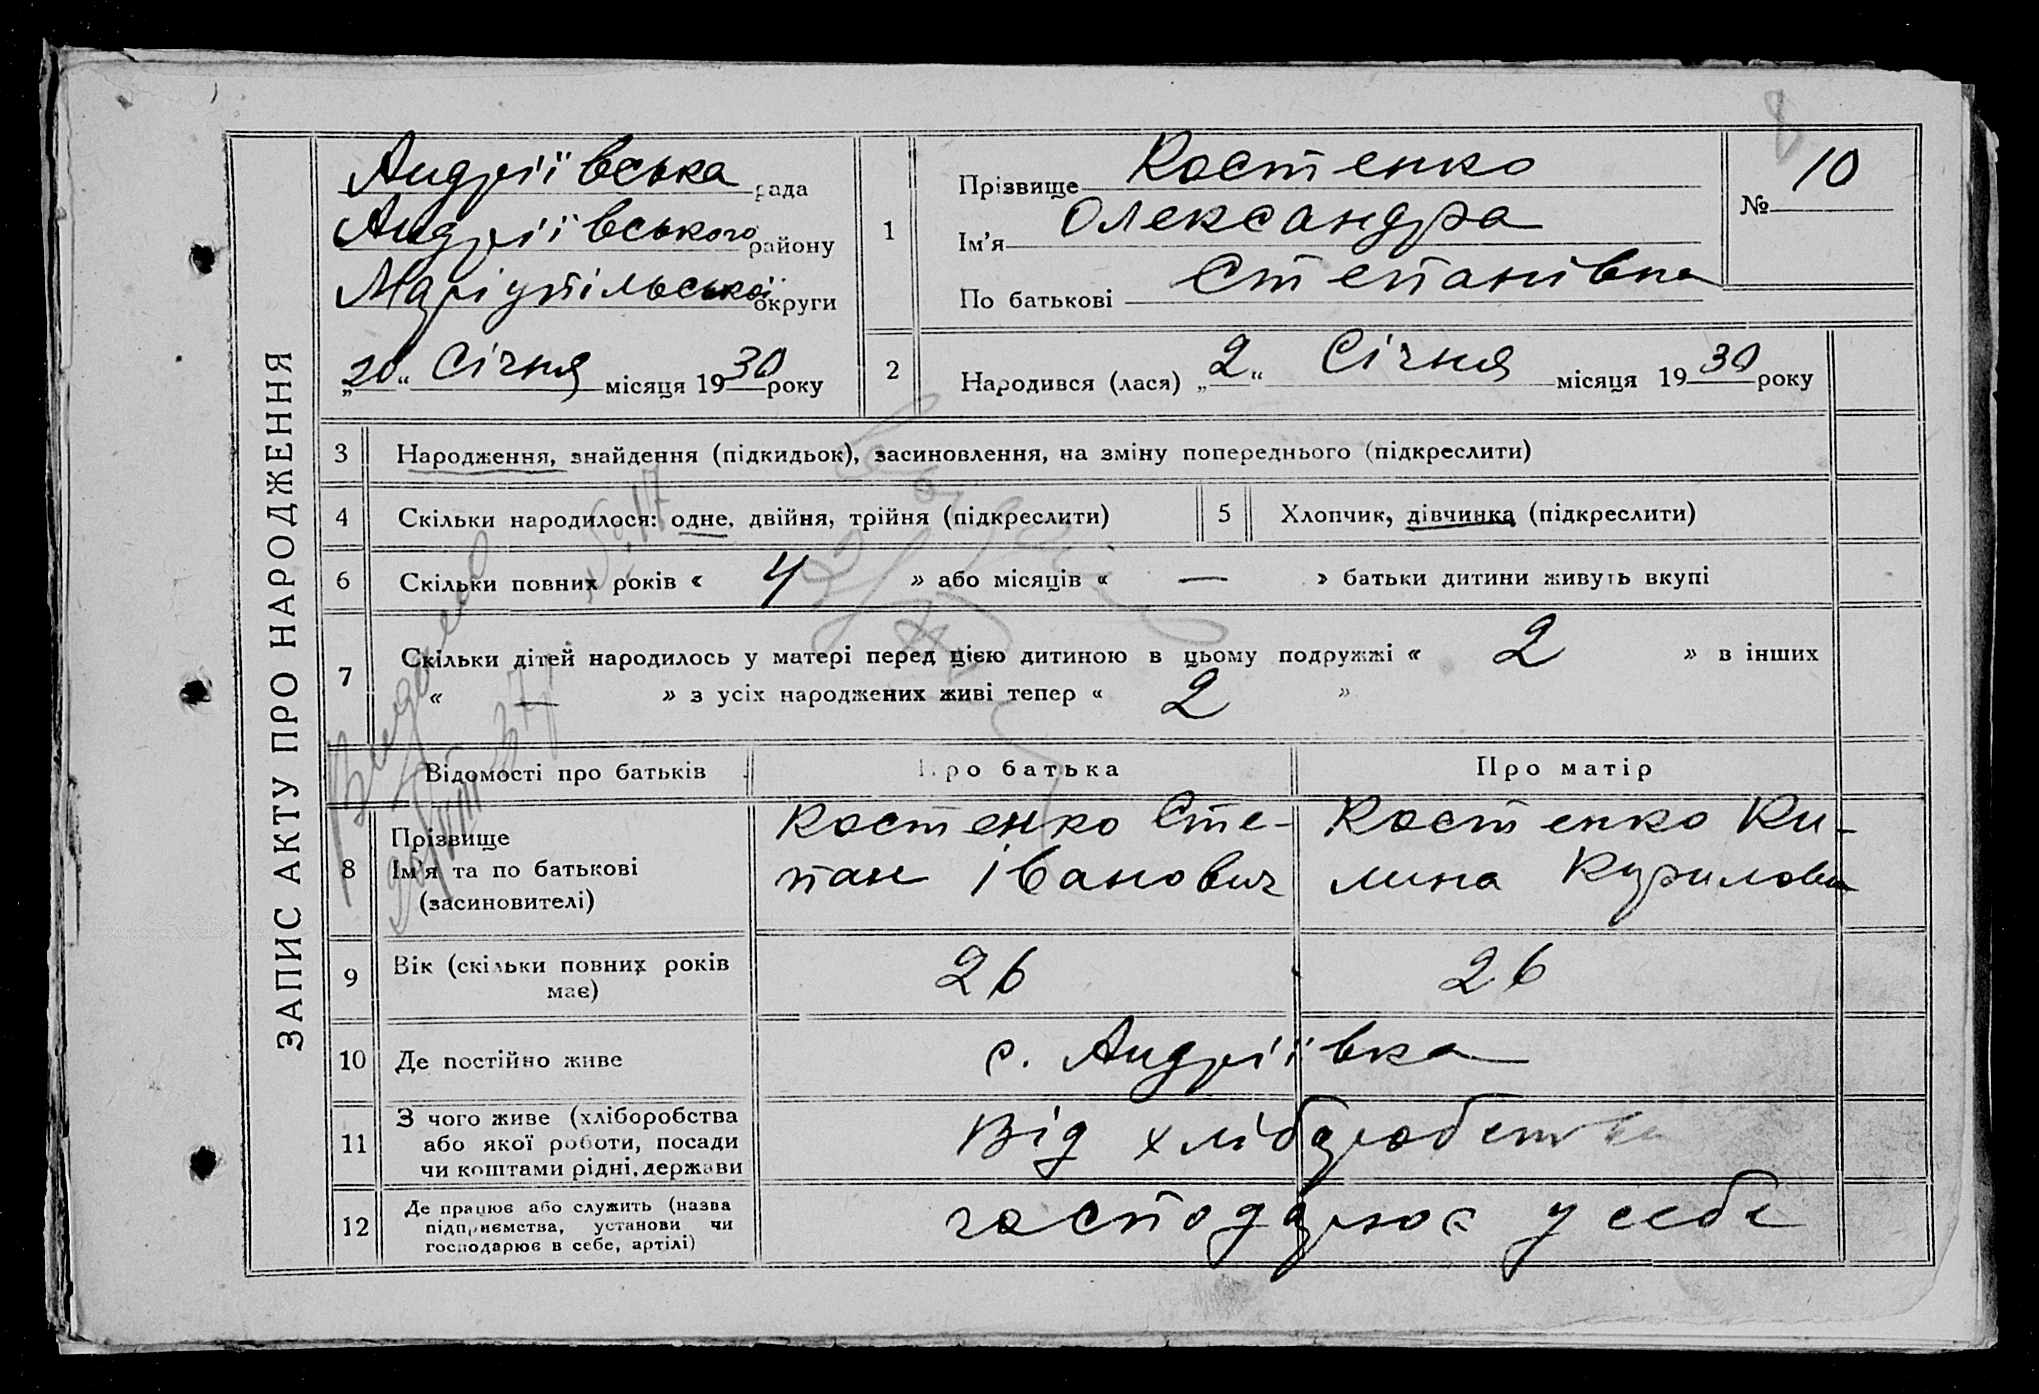 8
ЗАПИС АКТУ ПРО НАРОДЖЕННЯ
Андріївська рада
Андріївського району
Маріупільської округи
„20“ Січня місяця 1930 року
1
Прізвище Костенко
Ім’я Олександра
По батькові Степанівна
№ 10
2
Народився (лася) „2“ Січня місяця 1930 року
3 Народження, знайдення (підкидьок), засиновлення, на зміну попереднього (підкреслити)
4 Скільки народилося: одне, двійня, трійня (підкреслити)
5 Хлопчик, дівчинка (підкреслити)
6 Скільки повних років « 4 » або місяців « — » батьки дитини живуть вкупі
7 Скільки дітей народилось у матері перед цією дитиною в цьому подружжі « 2 » в інших
« — » з усіх народжених живі тепер « 2 »
Відомості про батьків Про батька Про матір
8 Прізвище
Ім’я та по батькові
(засиновителі)
Костенко Сте-
пан Іванович
Костенко Ки-
лина Курилов
9 Вік (скільки повних років
має)
26 26
10 Де постійно живе с. Андріївка
11 З чого живе (хліборобства
або якої роботи, посади
чи коштами рідні, держави
Від хліборобства
12 Де працює або служить (назва
підприємства, установи чи
господарює в себе, артілі)
господарює у себе